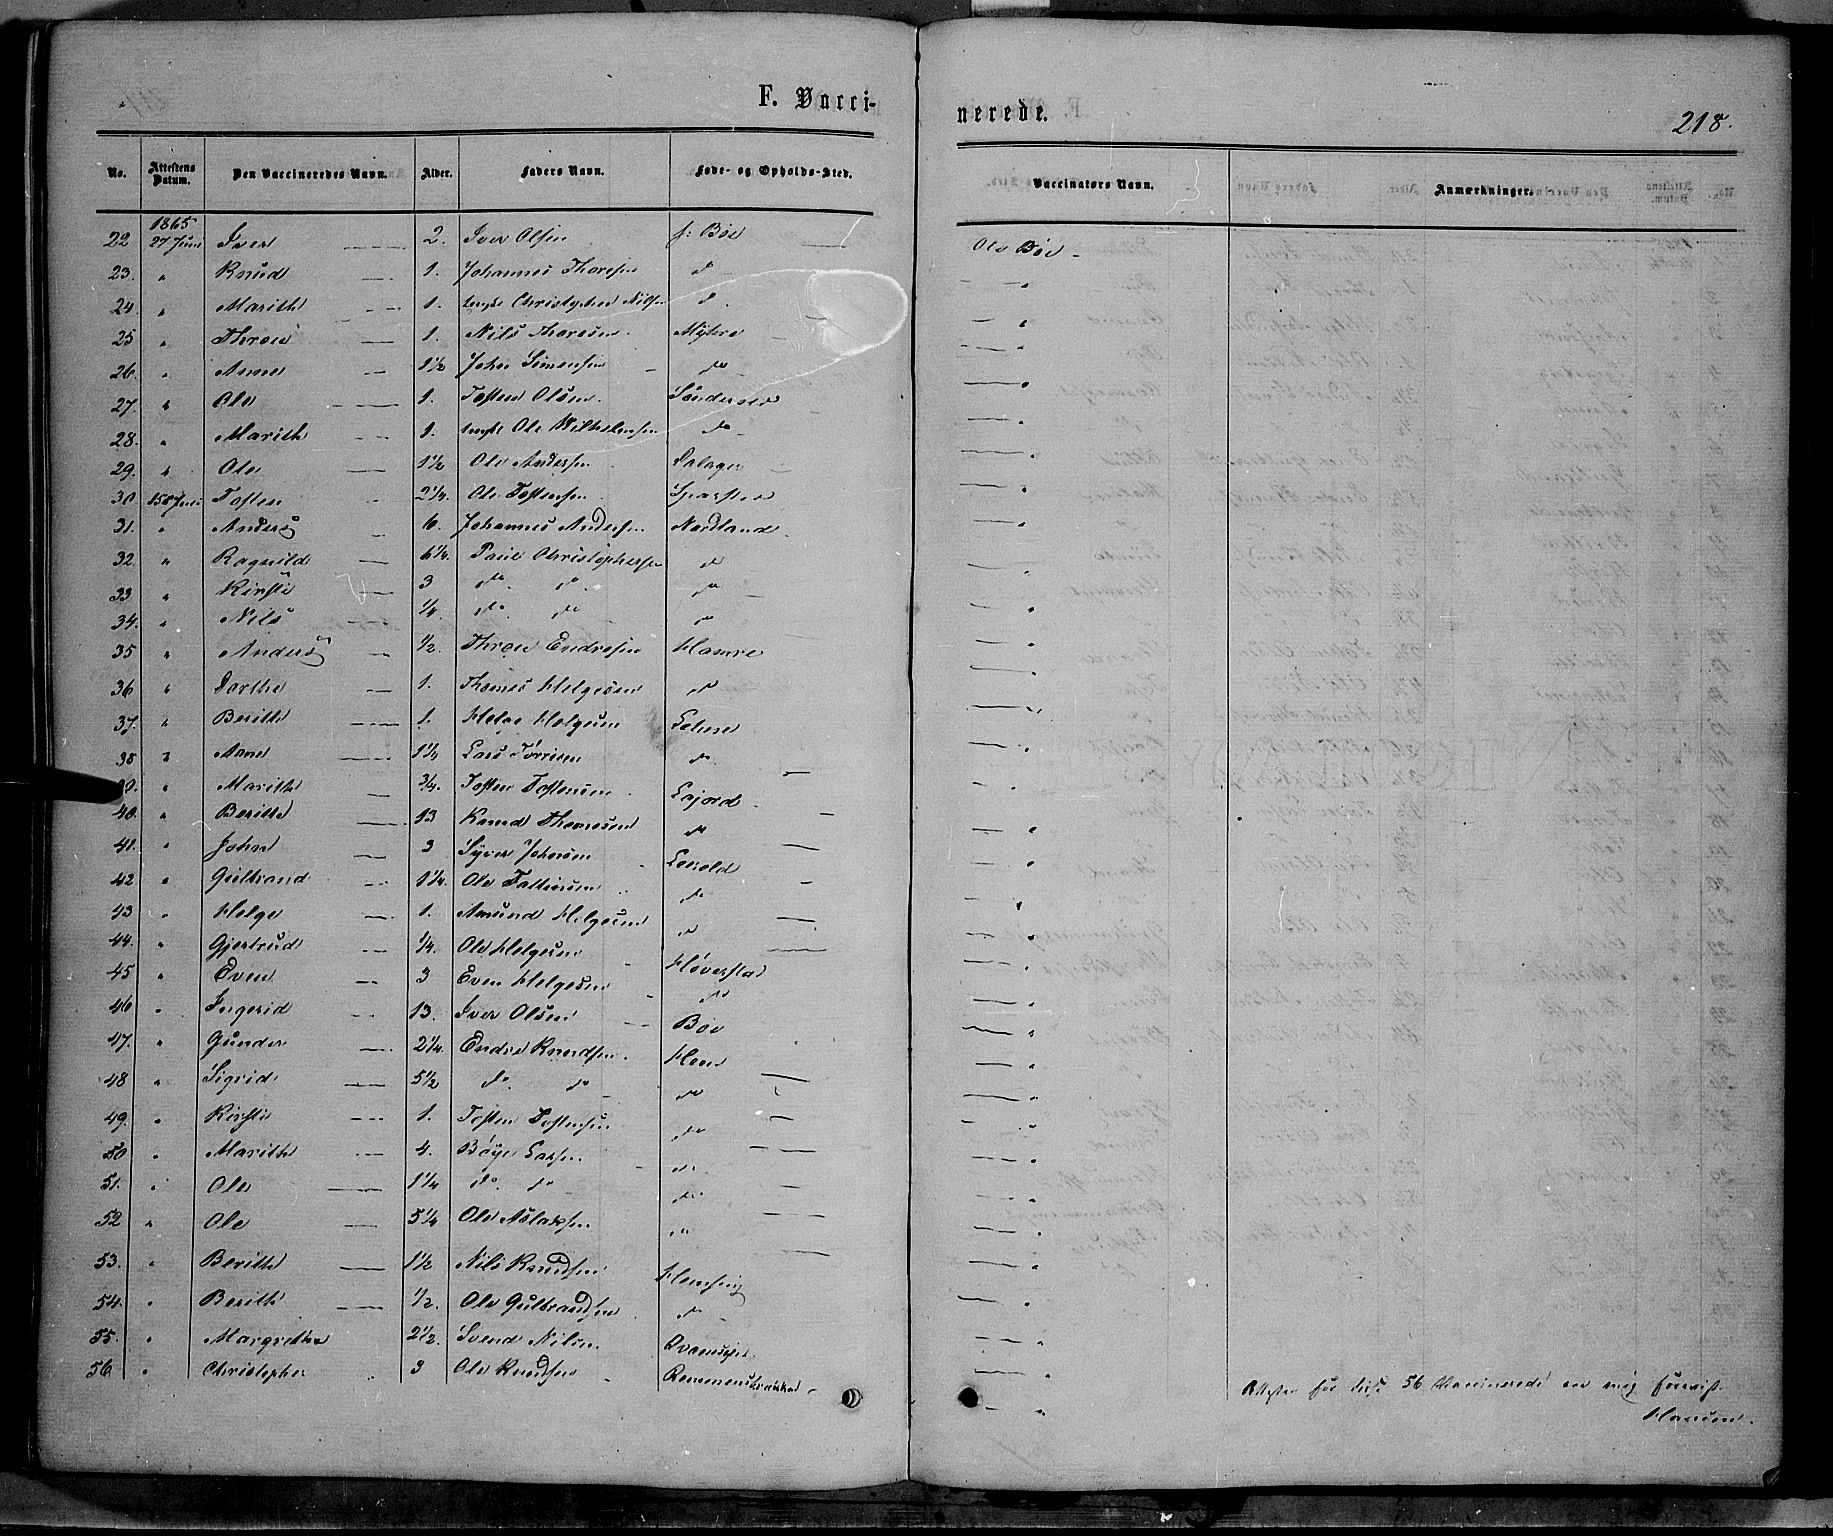 F. Vacci-
nerede.
218.
No. Attestens Datum. Den Vaccineredes Navn. Alder. Faders Navn. Føde- og Opholds-Sted. Vaccinators Navn. Anmærkninger.
1865
22 27 Juni Iver 2. Iver Olsen Bøe Ole Bøe
23. " Knud 1. Johannes Thoresen do
24. " Marith 1. Christopher Nilsen do
25 " Thron 1. Nils Thoresen Myhre
26. " Anne 1½ John Simensen do
27. " Ole 1. Tosten Olsen
28. " Marith 1. Ole Wilhelmsen do
29. " Ole 1½ Ole Andersen
30 Tosten 2¼. Ole Tostensen
31. " Anders 6. Johannes Andersen Nordland
32. " Ragnild 6¼. Paul Christophersen do
33 " Kirsti 3 do do do
34. " Nils ¼ do do do
35 " Anders ½. Thron Endresen Hamre
36 " Dorthe 1. Thomas Helgesen do
37. " Berith 1. Helge Helgesen
38 " Anne 1¼ Lars
39. " Marith ¾. Tosten Tostensen
40. " Berith 13 Knud Thoresen do
41. " John 3 Syver Johnsen
42 " Gulbrand 1¼. Ole do
43 " Helge 1. Amund Helgesen do
44. " Gjertrud ¼. Ole Helgesen
45 " Even 3 Even Helgesen do
46 " Ingerid 13. Iver Olsen Bøe
47. " Gunder 2¼. Endre Knudsen
48 " Sigrid 5½ do do do
49. " Kirsti 1. Tosten Tostensen do
50 " Marith 4. Bøye Larsen do
51. " Ole 1¼ do do do
52 " Ole 5¼ Ole Aslaksen do
53. " Berith 1½ Nils Knudsen
54. " Berith ½. Ole Gulbrandsen do
55. " Margrethe 2½. Svend Nilsen
56 " Christopher 3 Ole Knudsen
Attester for disse 56 Vaccinerede ere mig foreviist.